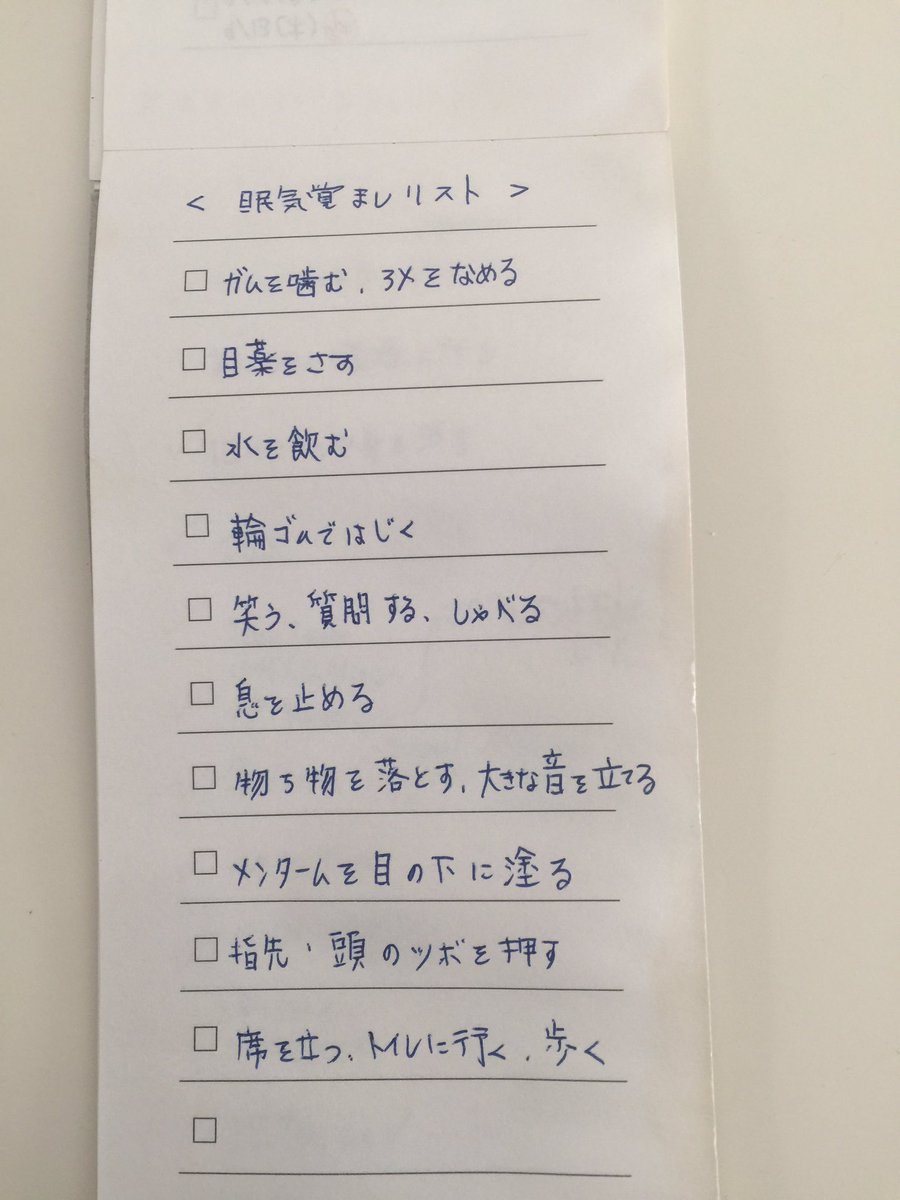 < 眠気覚ましリスト >
□ ガムを噛む、アメをなめる
□ 目薬をさす
□ 水を飲む
□ 輪ゴムではじく
□ 笑う、質問する、しゃべる
□ 息を止める
□ 物ち物を落とす、大きな音を立てる
□ メンタームを目の下に塗る
□ 指先・頭のツボを押す
□ 席を立つ、トイレに行く、歩く
□